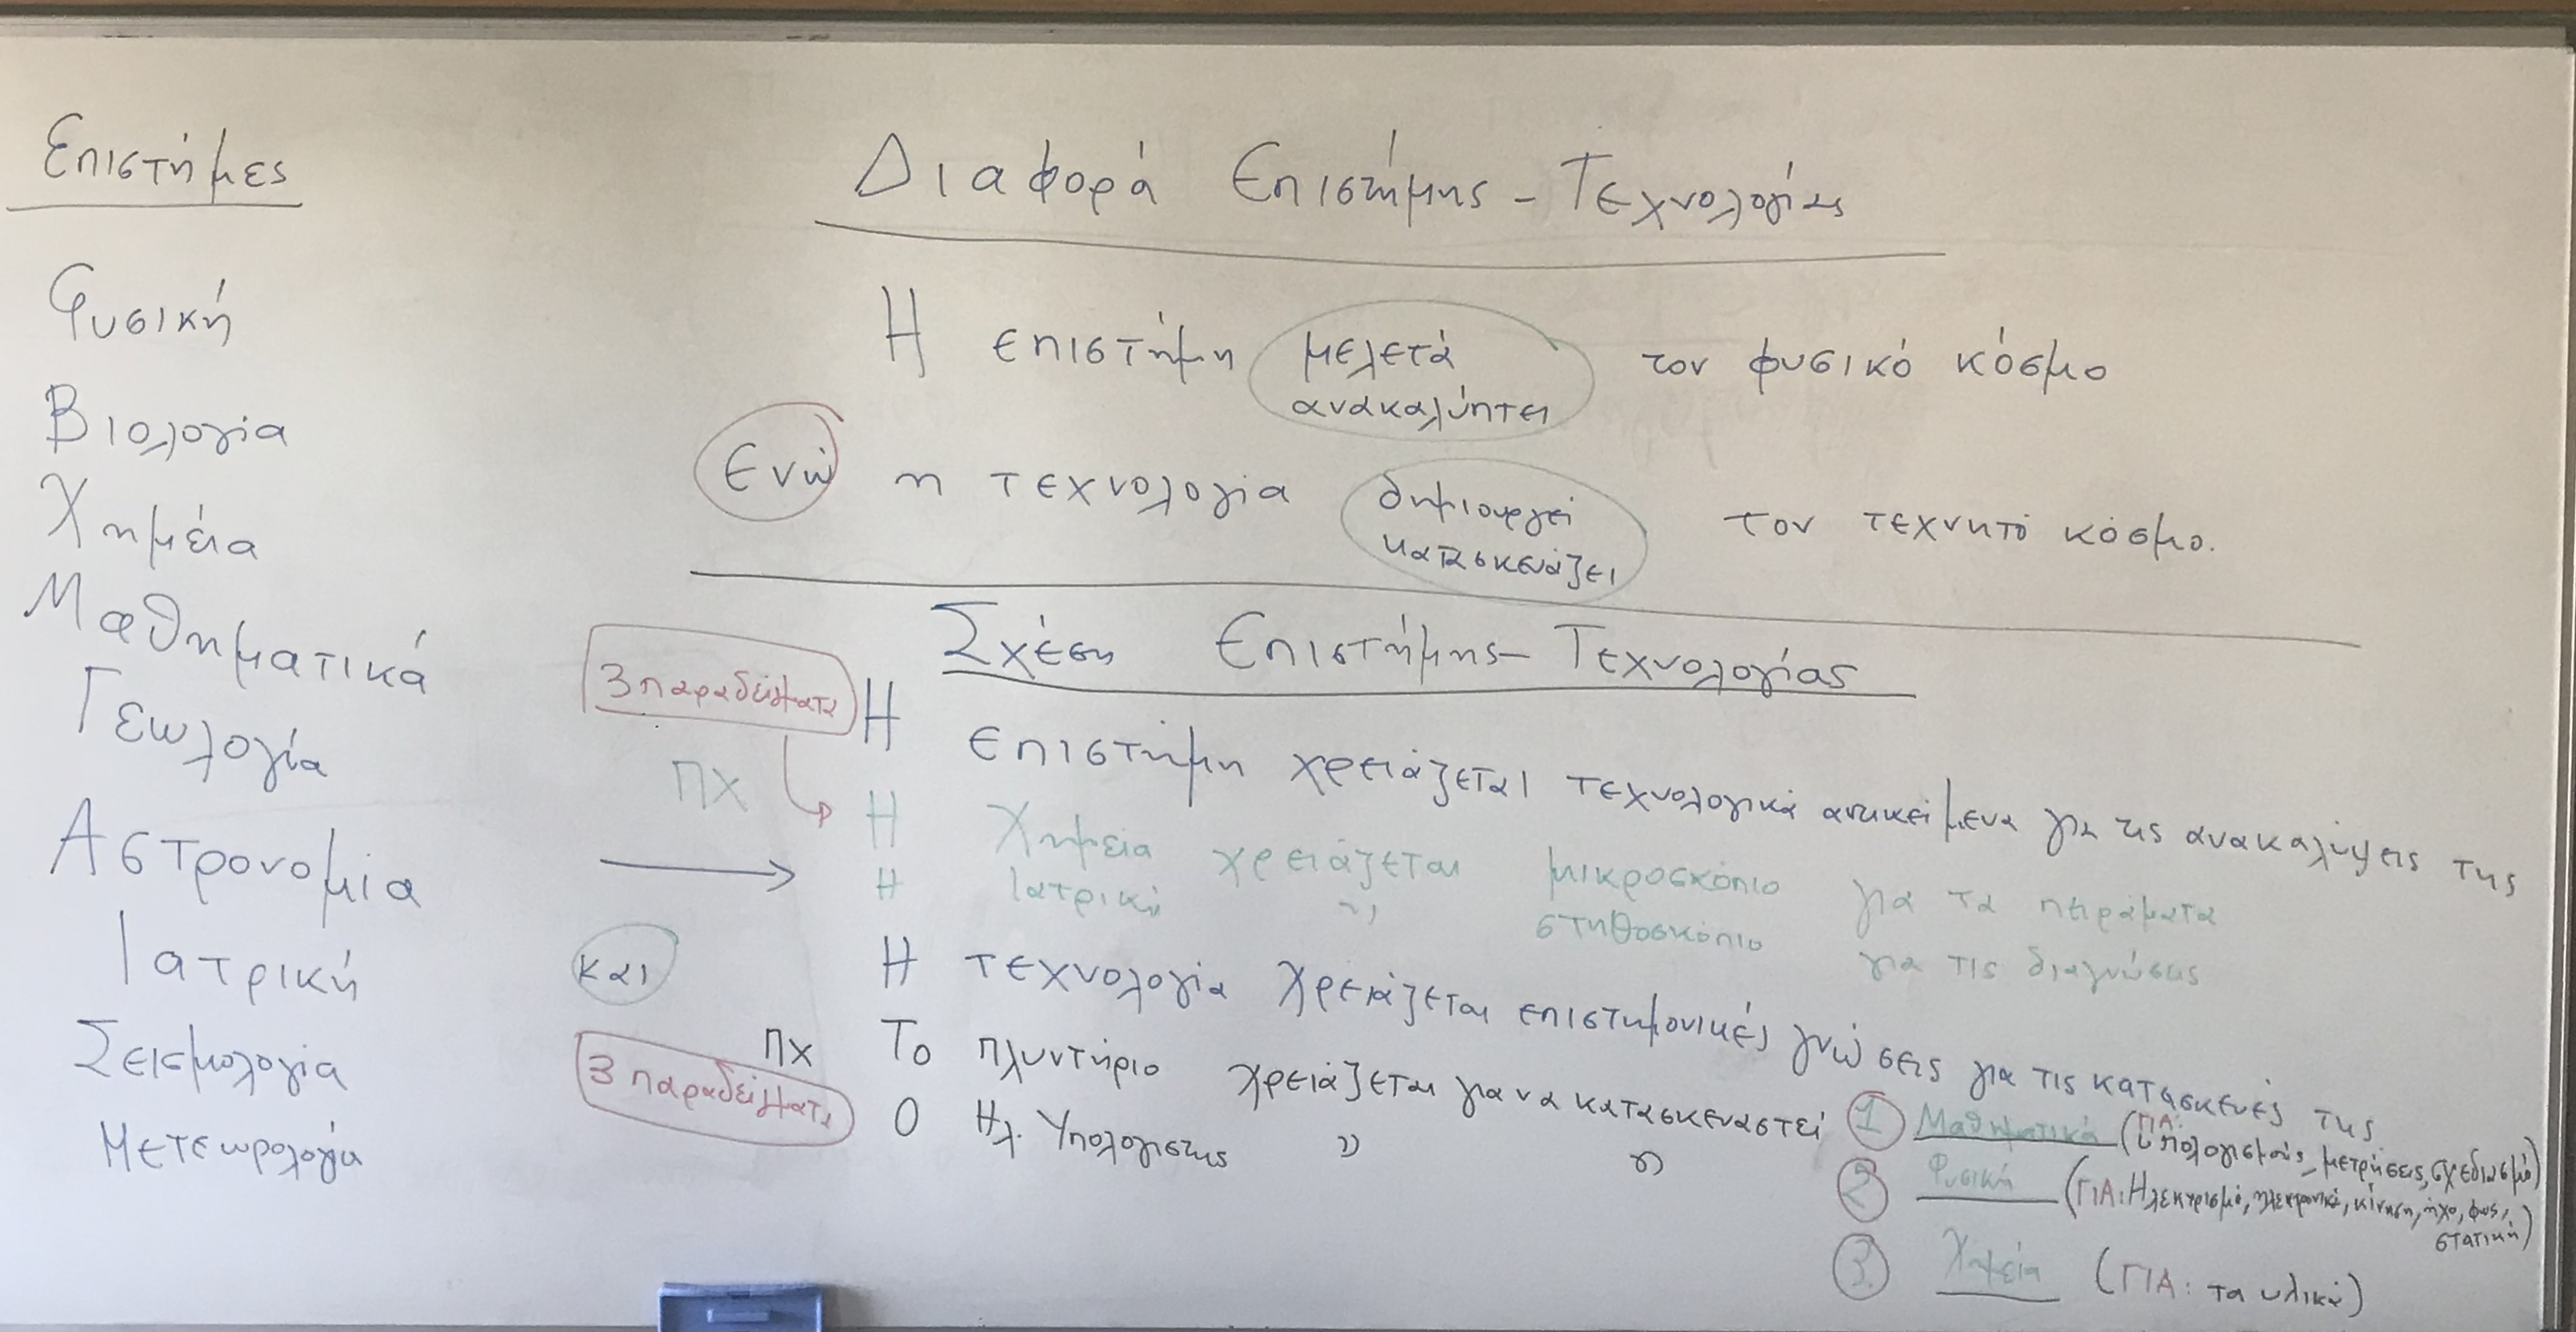 Επιστήμες
Φυσική
Βιολογία
Χημεία
Μαθηματικά
Γεωλογία
Αστρονομία
Ιατρική
Σεισμολογία
Μετεωρολογία
Διαφορά Επιστήμης - Τεχνολογίας
Η επιστήμη μελετά τον φυσικό κόσμο
ανακαλύπτει
Ενώ η τεχνολογία δημιουργεί τον τεχνητό κόσμο.
κατασκευάζει
Σχέση Επιστήμης - Τεχνολογίας
3 παραδείγματα
Η επιστήμη χρειάζεται τεχνολογικά αντικείμενα για τις ανακαλύψεις της
ΠΧ Η Χημεία χρειάζεται μικροσκόπιο για τα πειράματα
Η Ιατρική " στηθοσκόπιο για τις διαγνώσεις
και Η τεχνολογία χρειάζεται επιστημονικές γνώσεις για τις κατασκευές της
3 παραδείγματα
ΠΧ Το πλυντήριο χρειάζεται για να κατασκευαστεί
Ο Ηλ. Υπολογιστης " "
1 Μαθηματικά (ΓΙΑ: υπολογισμούς, μετρήσεις, σχεδιασμό)
2 Φυσική (ΓΙΑ: Ηλεκτρισμό, ηλεκτρονικά, κίνηση, ήχο, φως,
στατική)
3. Χημεία (ΓΙΑ: τα υλικά)